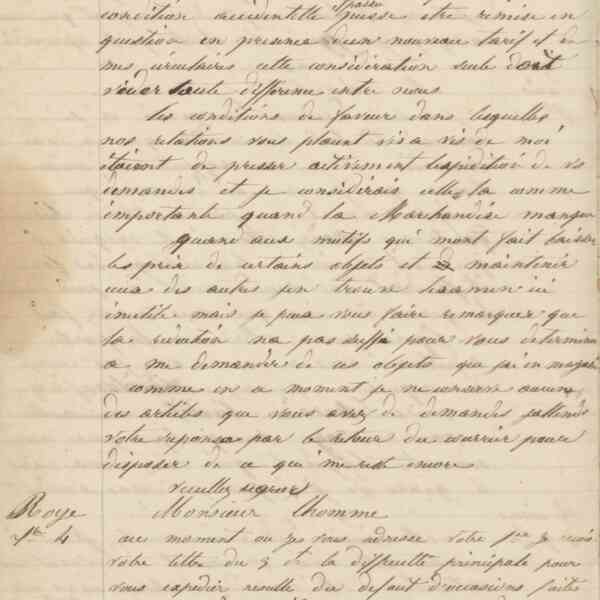 condition accidentelle puisse etre remise en
question en presence d'un nouveau tarif et de
mes circulaires cette considération seule doit
vider toute différence entre nous
les conditions de faveur dans lesquelles
nos relations vous placent vis a vis de moi
étaient de presser activement l'expédition de vos
demandes et je considérais celle la comme
importante quand la Marchandise manque
quand aux motifs qui m'ont fait baisser
les prix de certains objets et maintenir
ceux des autres j'en trouve l'examen ici
inutile mais je puis vous faire remarquer que
la réduction n'a pas suffi pour vous determiner
a me demander de ces objets que j'ai en magasin
comme en ce moment je ne conserve aucun
des articles que vous avez de demandés j'attends
votre reponse par le retour du courrier pour
disposer de ce qui me reste encore
veuillez agréer
Roye Monsieur Lhomme
4 au moment ou je vous adresse votre je reçois
votre lettre du 3 et la difficulté principale pour
vous expedier resulte du defaut d'occasions faites